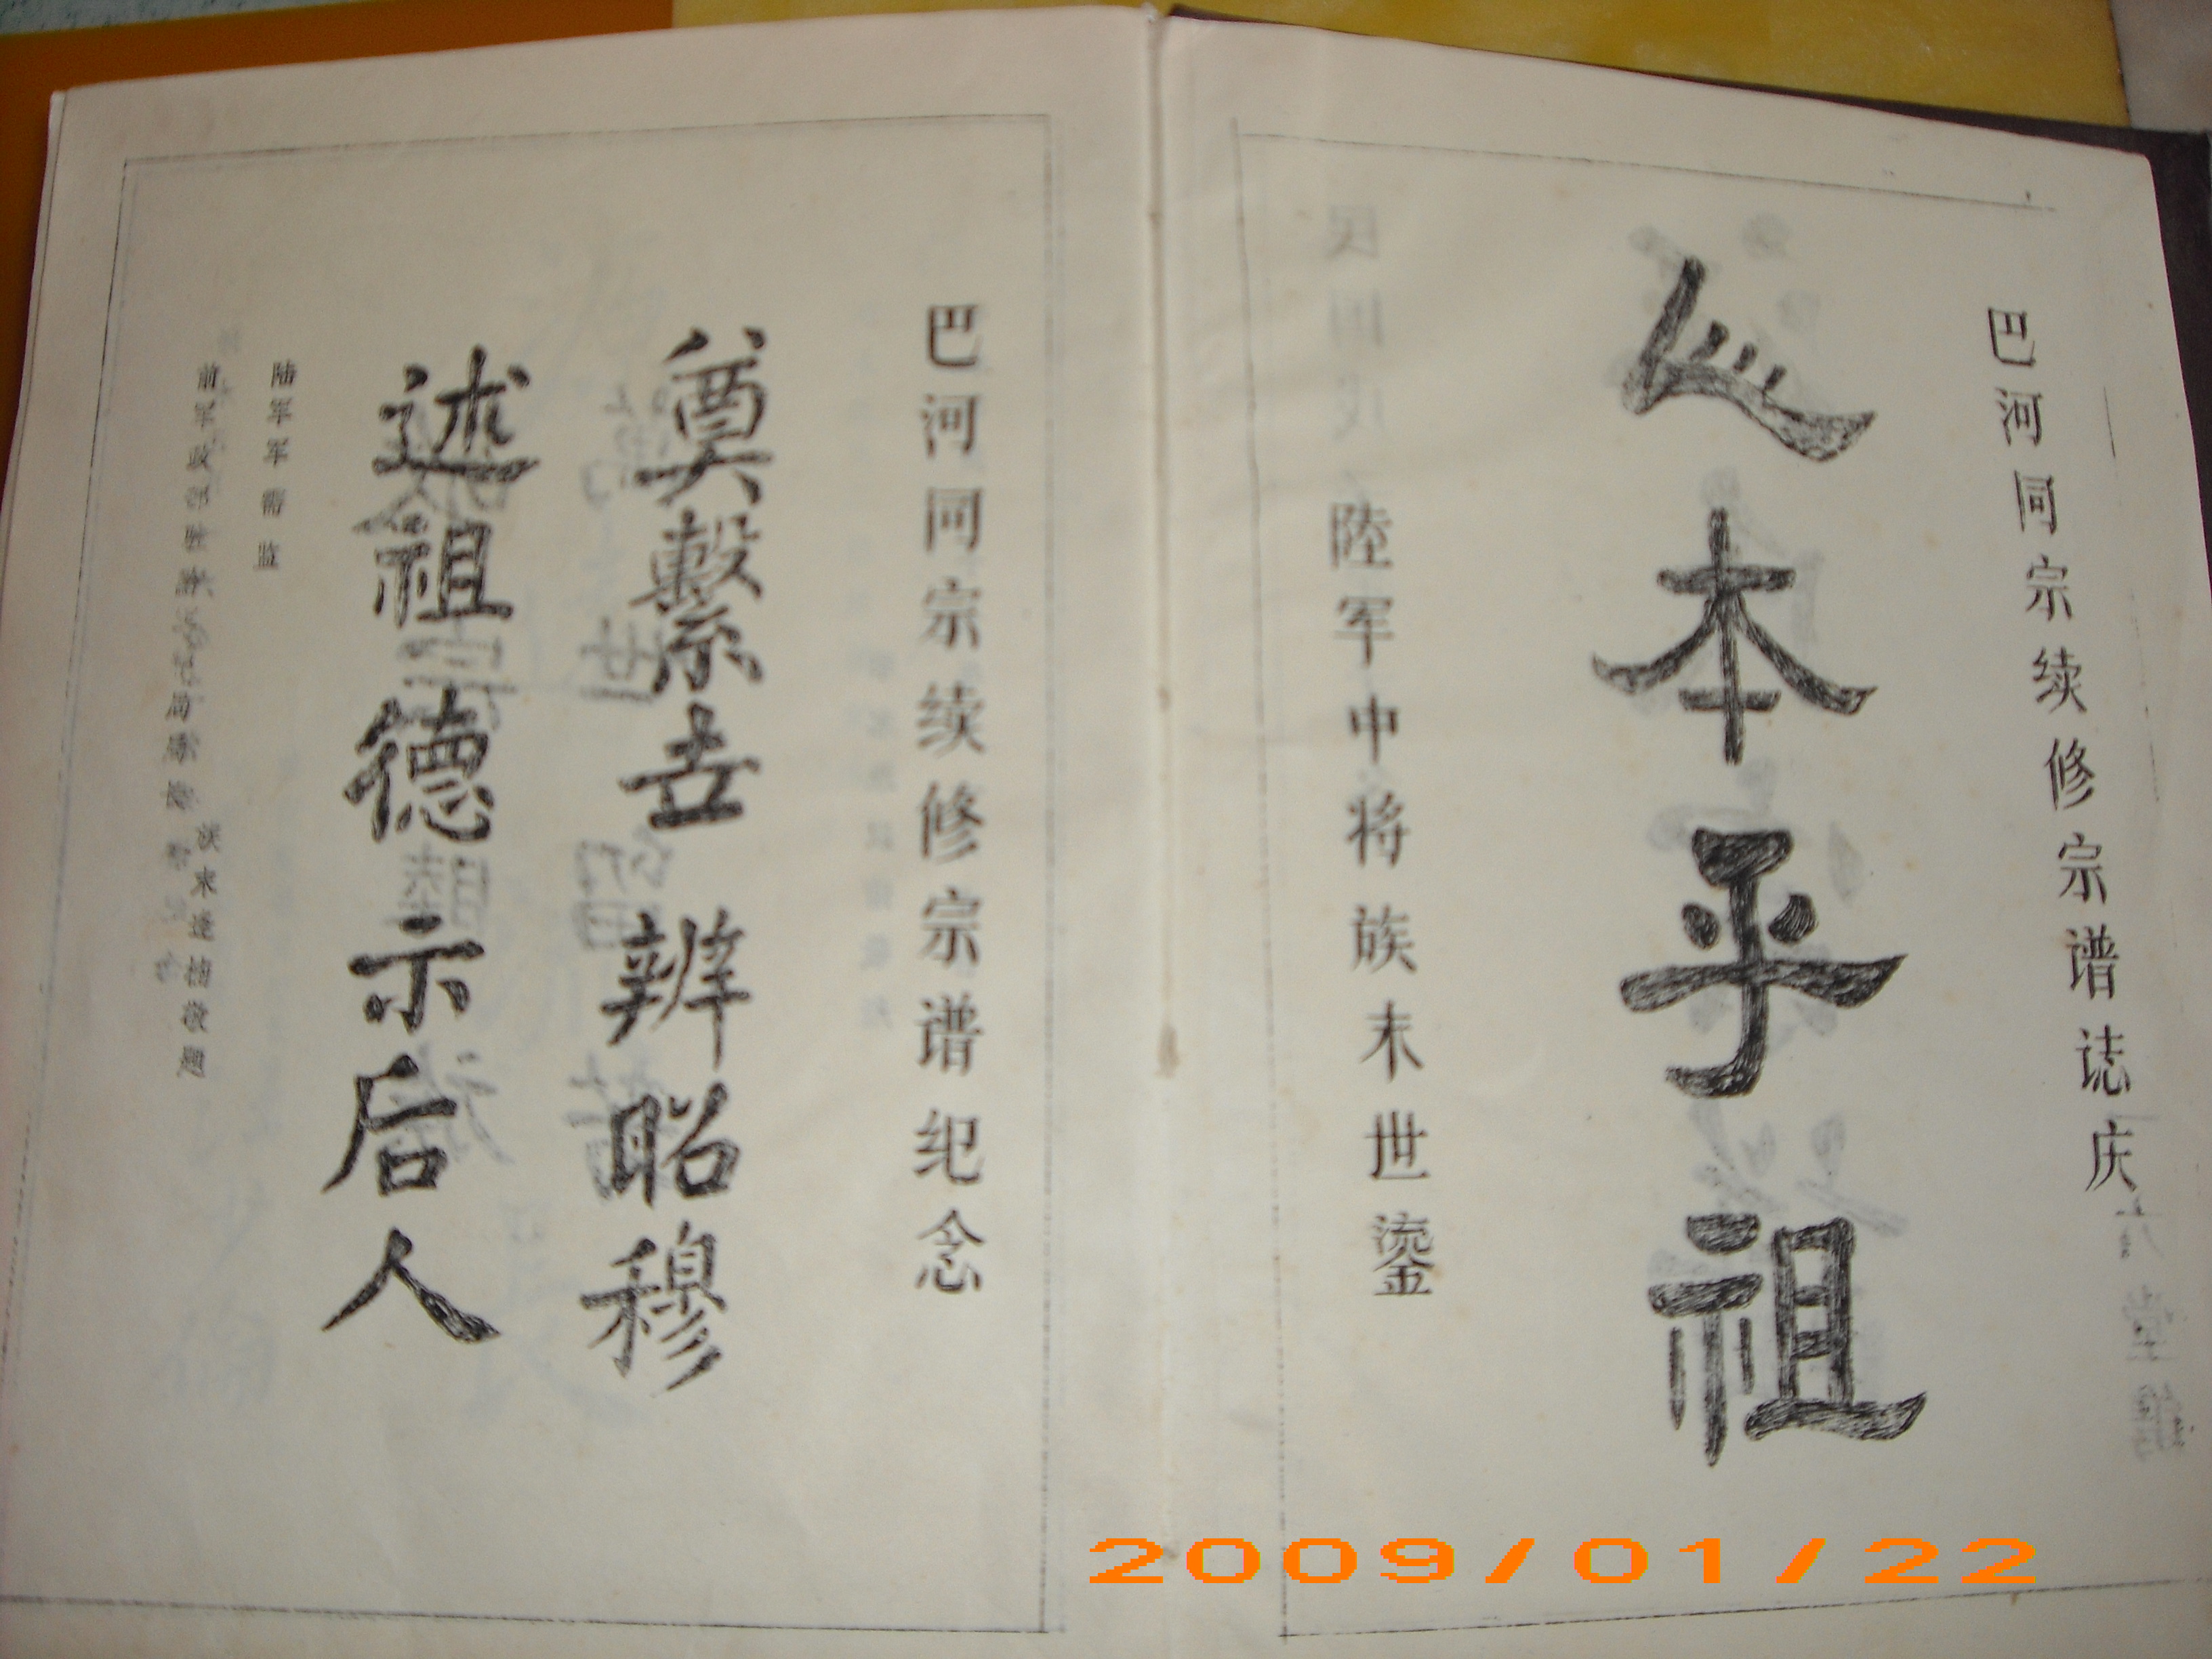 巴河同宗续修宗谱誌庆
人本乎祖
陸军中将族末世鎏
巴河同宗续修宗谱纪念
奠繫世辨昭穆
述祖德示后人
陆军军需监
族末逵 敬题
2009/01/22